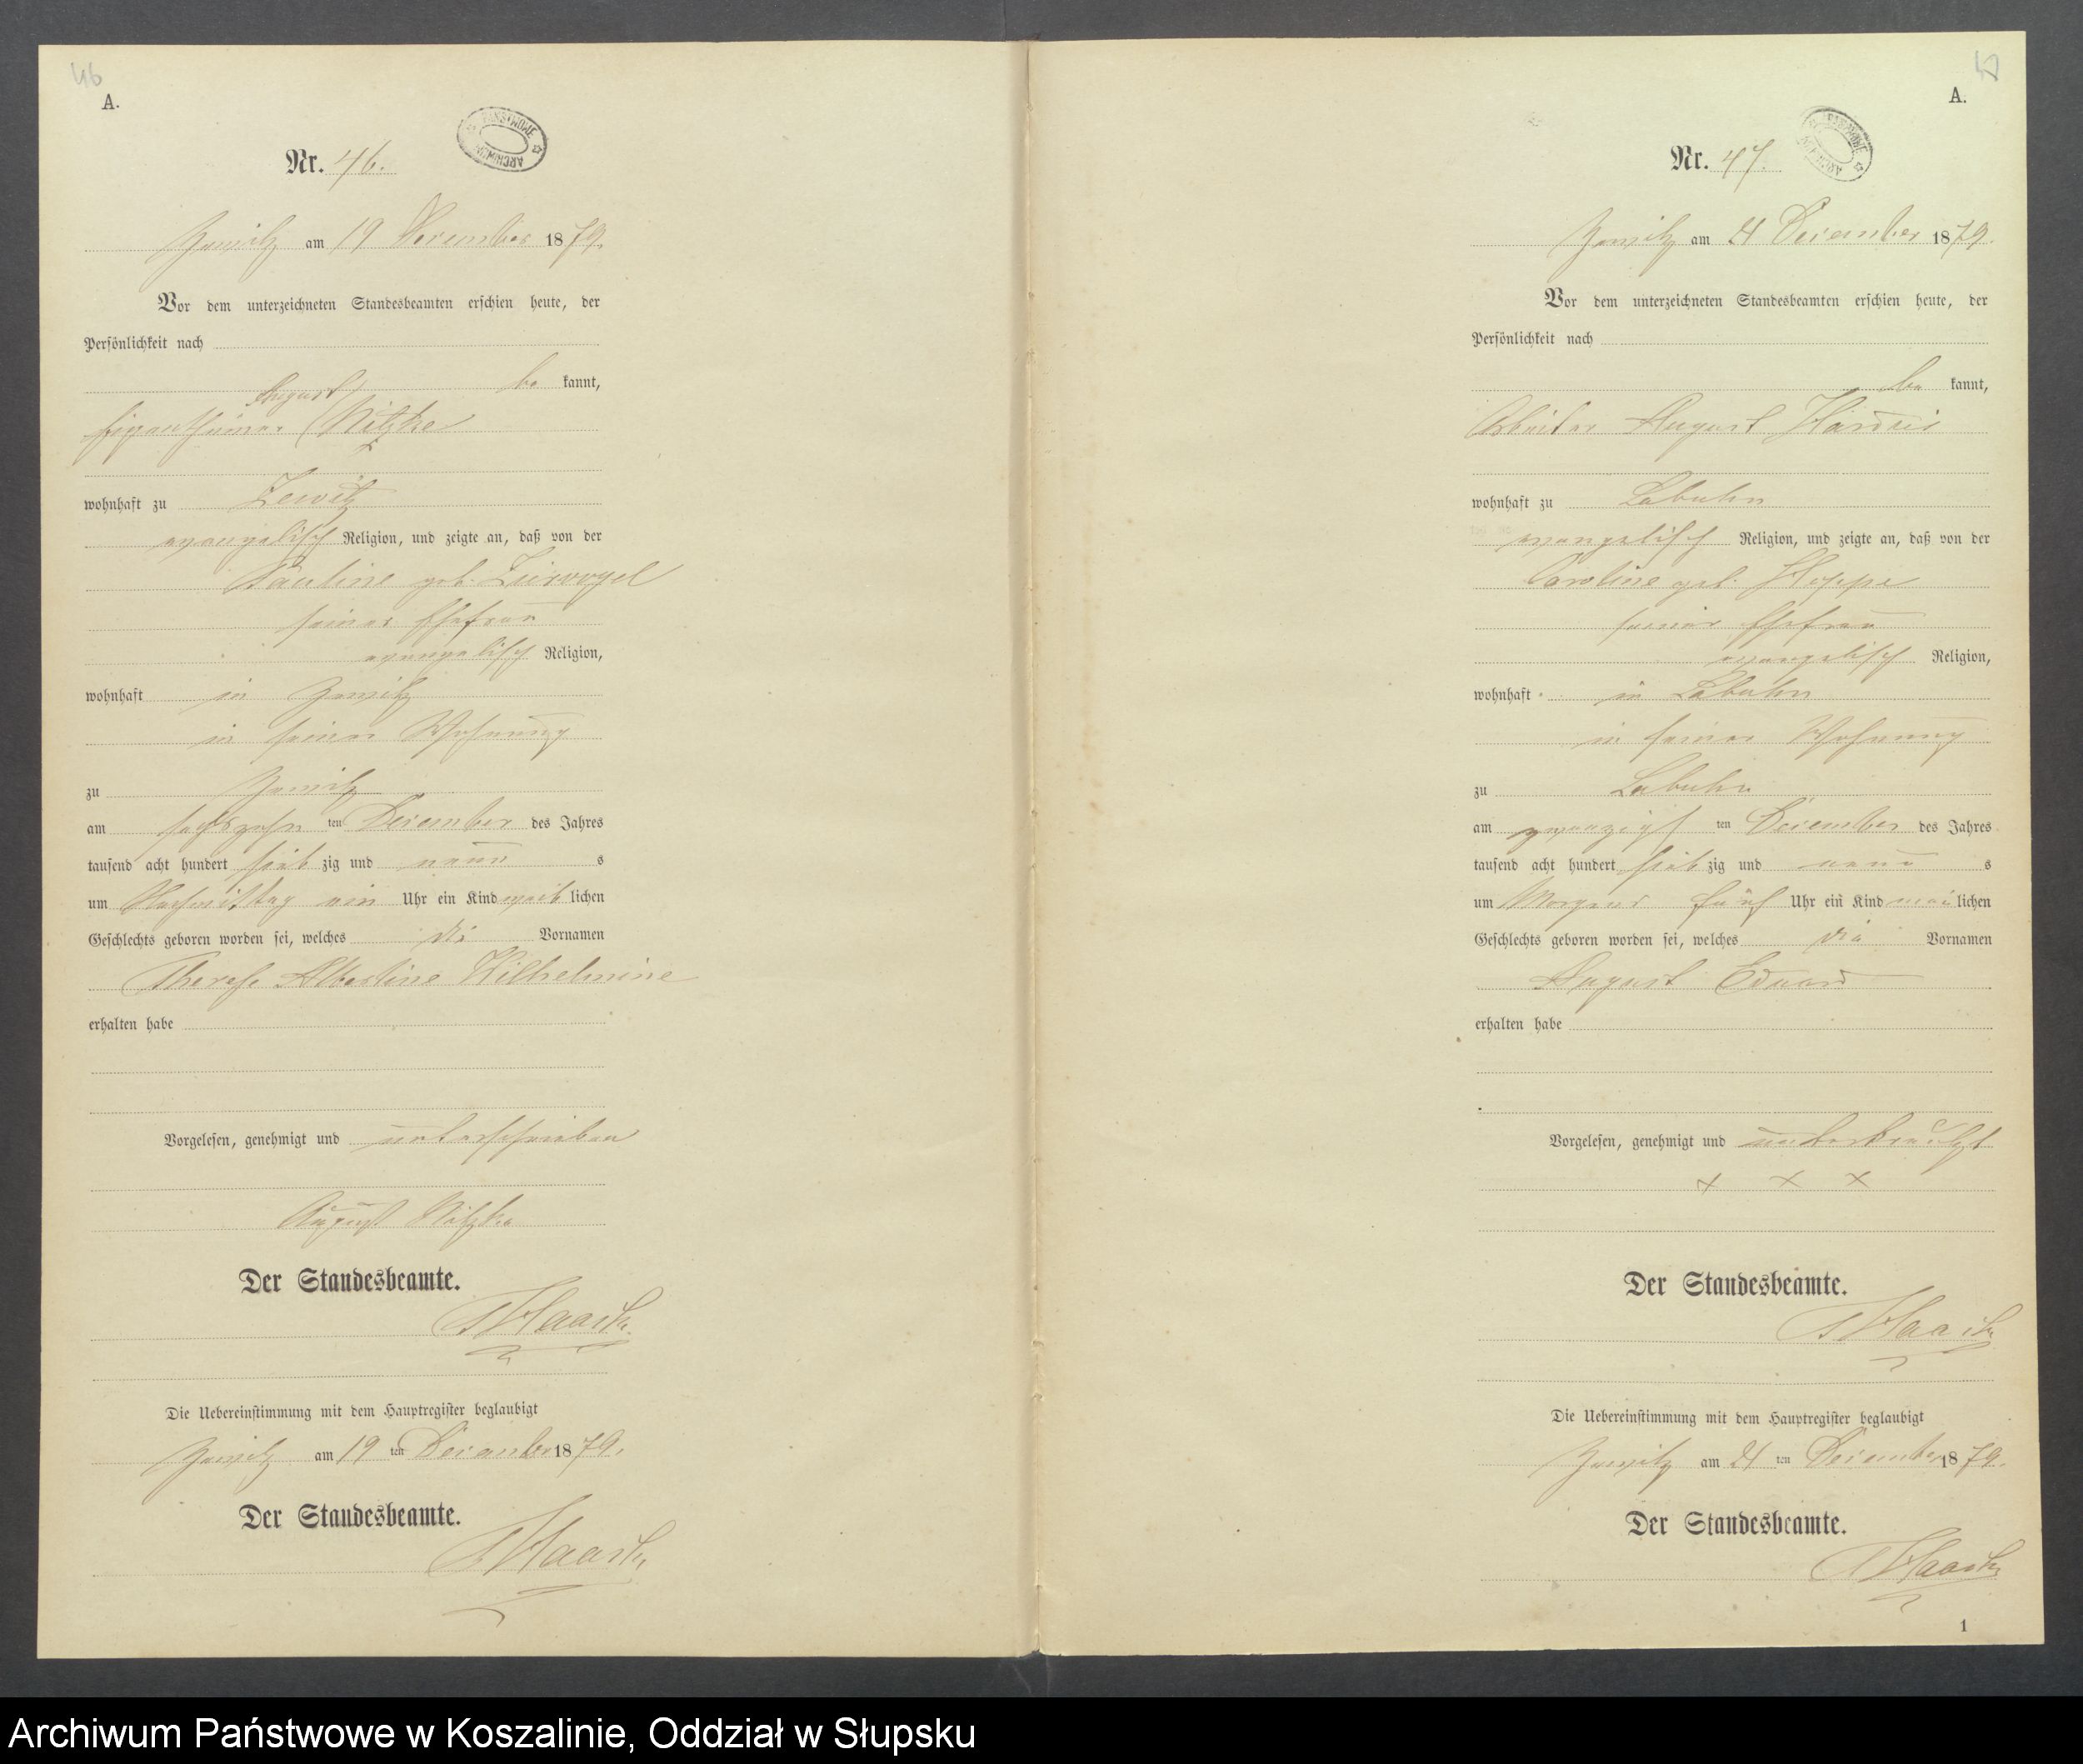 46
A.
PAŃSTWOWE ARCHIWUM
Nr. 46.
am 19 December 1879.
Vor dem unterzeichneten Standesbeamten erschien heute, der
Persönlichkeit nach
be kannt,
August
Eigenthümer Nitzke
wohnhaft zu
evangelisch Religion, und zeigte an, daß von der
Pauline geb. Zuirvogel
seiner Ehefrau
evangelisch Religion,
wohnhaft in
in seiner Wohnung
zu
am sechszehn ten December des Jahres
tausend acht hundert sieb zig und neun s
um Nachmittag ein Uhr ein Kind weib lichen
Geschlechts geboren worden sei, welches die Vornamen
Therese Albertine Wilhelmine
erhalten habe
Vorgelesen, genehmigt und unterschrieben
August Nitzke
Der Standesbeamte.
Haack
Die Uebereinstimmung mit dem Hauptregister beglaubigt
am 19 ten December 1879.
Der Standesbeamte.
Haack
A.
PAŃSTWOWE ARCHIWUM
Nr. 47.
am 21 December 1879.
Vor dem unterzeichneten Standesbeamten erschien heute, der
Persönlichkeit nach
be kannt,
Arbeiter August
wohnhaft zu Labuhn
evangelisch Religion, und zeigte an, daß von der
Caroline geb. Hoppe
seiner Ehefrau
evangelisch Religion,
wohnhaft in Labuhn
in seiner Wohnung
zu Labuhn
am zwanzigst ten December des Jahres
tausend acht hundert sieb zig und neun s
um Morgens fünf Uhr ein Kind lichen
Geschlechts geboren worden sei, welches die Vornamen
August Eduard
erhalten habe
Vorgelesen, genehmigt und unterkreuzt
x x x
Der Standesbeamte.
Haack
Die Uebereinstimmung mit dem Hauptregister beglaubigt
am 21 ten December 1879.
Der Standesbeamte.
Haack
1
Archiwum Państwowe w Koszalinie, Oddział w Słupsku